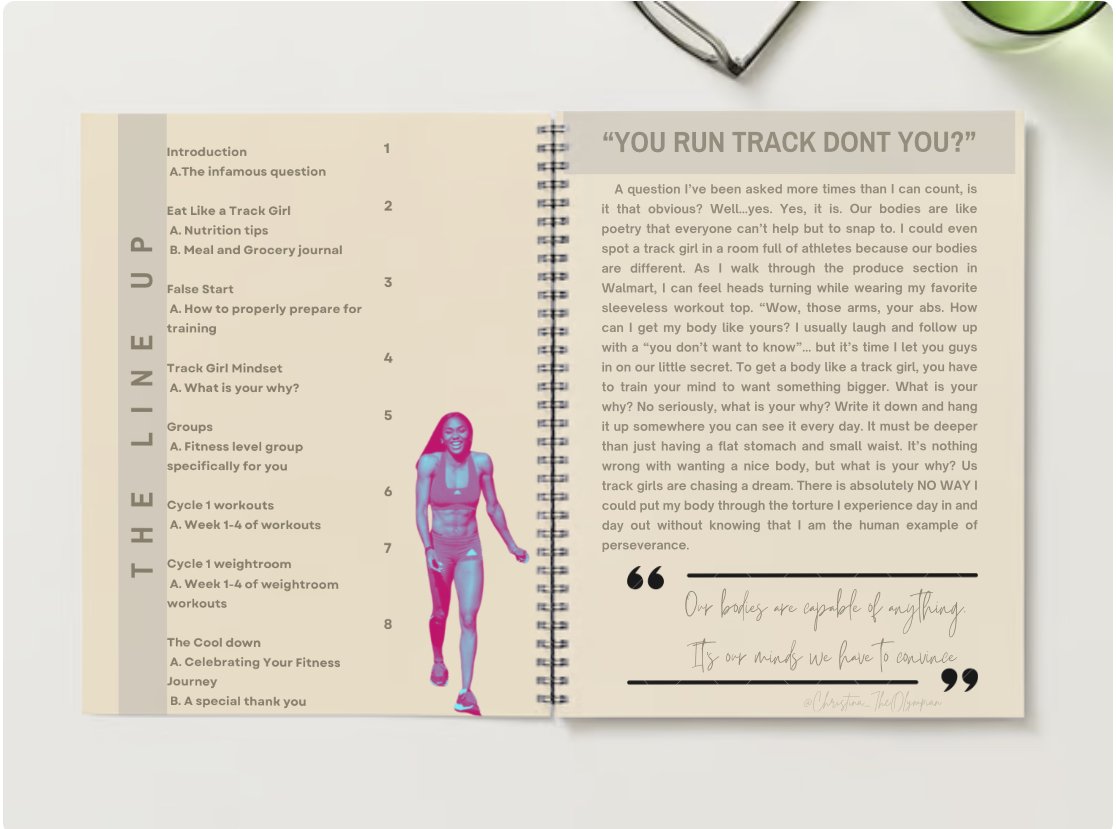 THE LINE UP
Introduction 1
A.The infamous question
Eat Like a Track Girl 2
A. Nutrition tips
B. Meal and Grocery journal
False Start 3
A. How to properly prepare for
training
Track Girl Mindset 4
A. What is your why?
Groups 5
A. Fitness level group
specifically for you
Cycle 1 workouts 6
A. Week 1-4 of workouts
Cycle 1 weightroom 7
A. Week 1-4 of weightroom
workouts
The Cool down 8
A. Celebrating Your Fitness
Journey
B. A special thank you
“YOU RUN TRACK DONT YOU?”
A question I’ve been asked more times than I can count, is
it that obvious? Well...yes. Yes, it is. Our bodies are like
poetry that everyone can’t help but to snap to. I could even
spot a track girl in a room full of athletes because our bodies
are different. As I walk through the produce section in
Walmart, I can feel heads turning while wearing my favorite
sleeveless workout top. “Wow, those arms, your abs. How
can I get my body like yours? I usually laugh and follow up
with a “you don’t want to know”... but it’s time I let you guys
in on our little secret. To get a body like a track girl, you have
to train your mind to want something bigger. What is your
why? No seriously, what is your why? Write it down and hang
it up somewhere you can see it every day. It must be deeper
than just having a flat stomach and small waist. It’s nothing
wrong with wanting a nice body, but what is your why? Us
track girls are chasing a dream. There is absolutely NO WAY I
could put my body through the torture I experience day in and
day out without knowing that I am the human example of
perseverance.
“
Our bodies are capable of anything.
It's our minds we have to convince
”
@Christina_TheOlympian